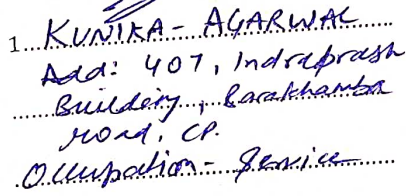 1 KUNIKA - AGARWAL
Add: 407, Indraprash
Building, Barakhamba
road, CP.
Occupation - Service